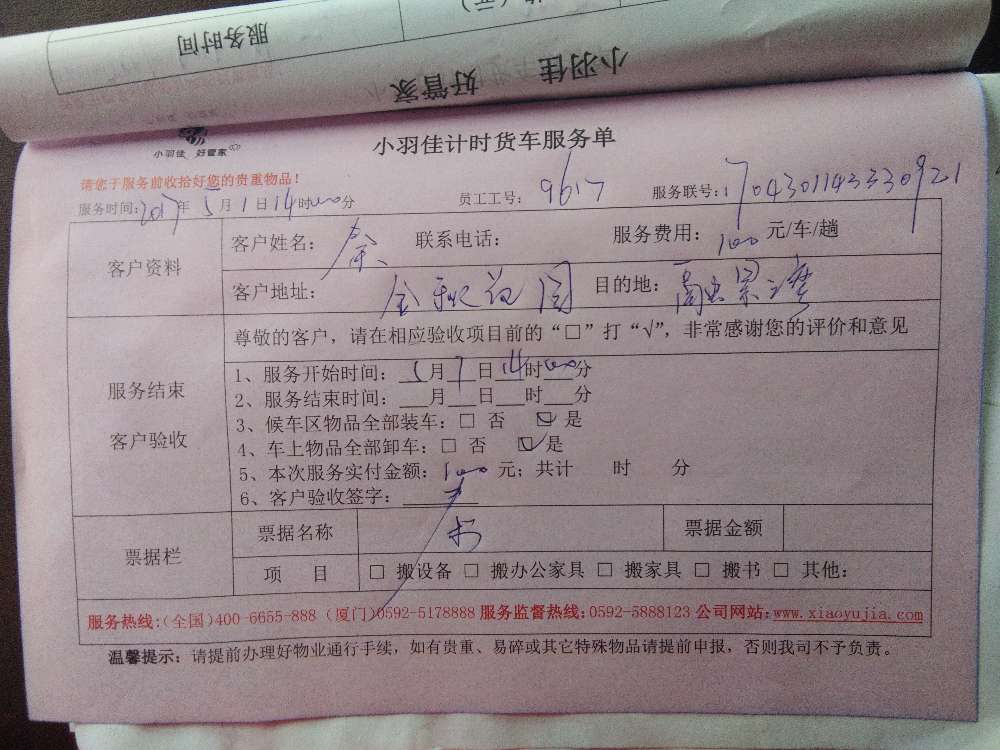 服务时间
小羽佳 好管家
小羽佳 好管家
小羽佳计时货车服务单
请您于服务前收拾好您的贵重物品！
服务时间：2017年5月1日14时00分 员工工号：9617 服务联号：1704301143330921
客户资料
客户姓名：余 联系电话： 服务费用：100元/车/趟
客户地址：金秋花园 目的地：
服务结束
客户验收
尊敬的客户，请在相应验收项目前的“□”打“√”，非常感谢您的评价和意见
1、服务开始时间：5月1日14时00分
2、服务结束时间：___月___日___时___分
3、候车区物品全部装车：□ 否 ☑ 是
4、车上物品全部卸车：□ 否 ☑ 是
5、本次服务实付金额：100元；共计 时 分
6、客户验收签字：
票据栏
票据名称 票据金额
项 目 □ 搬设备 □ 搬办公家具 □ 搬家具 □ 搬书 □ 其他：
服务热线：（全国）400-6655-888（厦门）0592-5178888 服务监督热线：0592-5888123 公司网站：www.xiaoyujia.com
温馨提示：请提前办理好物业通行手续，如有贵重、易碎或其它特殊物品请提前申报，否则我司不予负责。